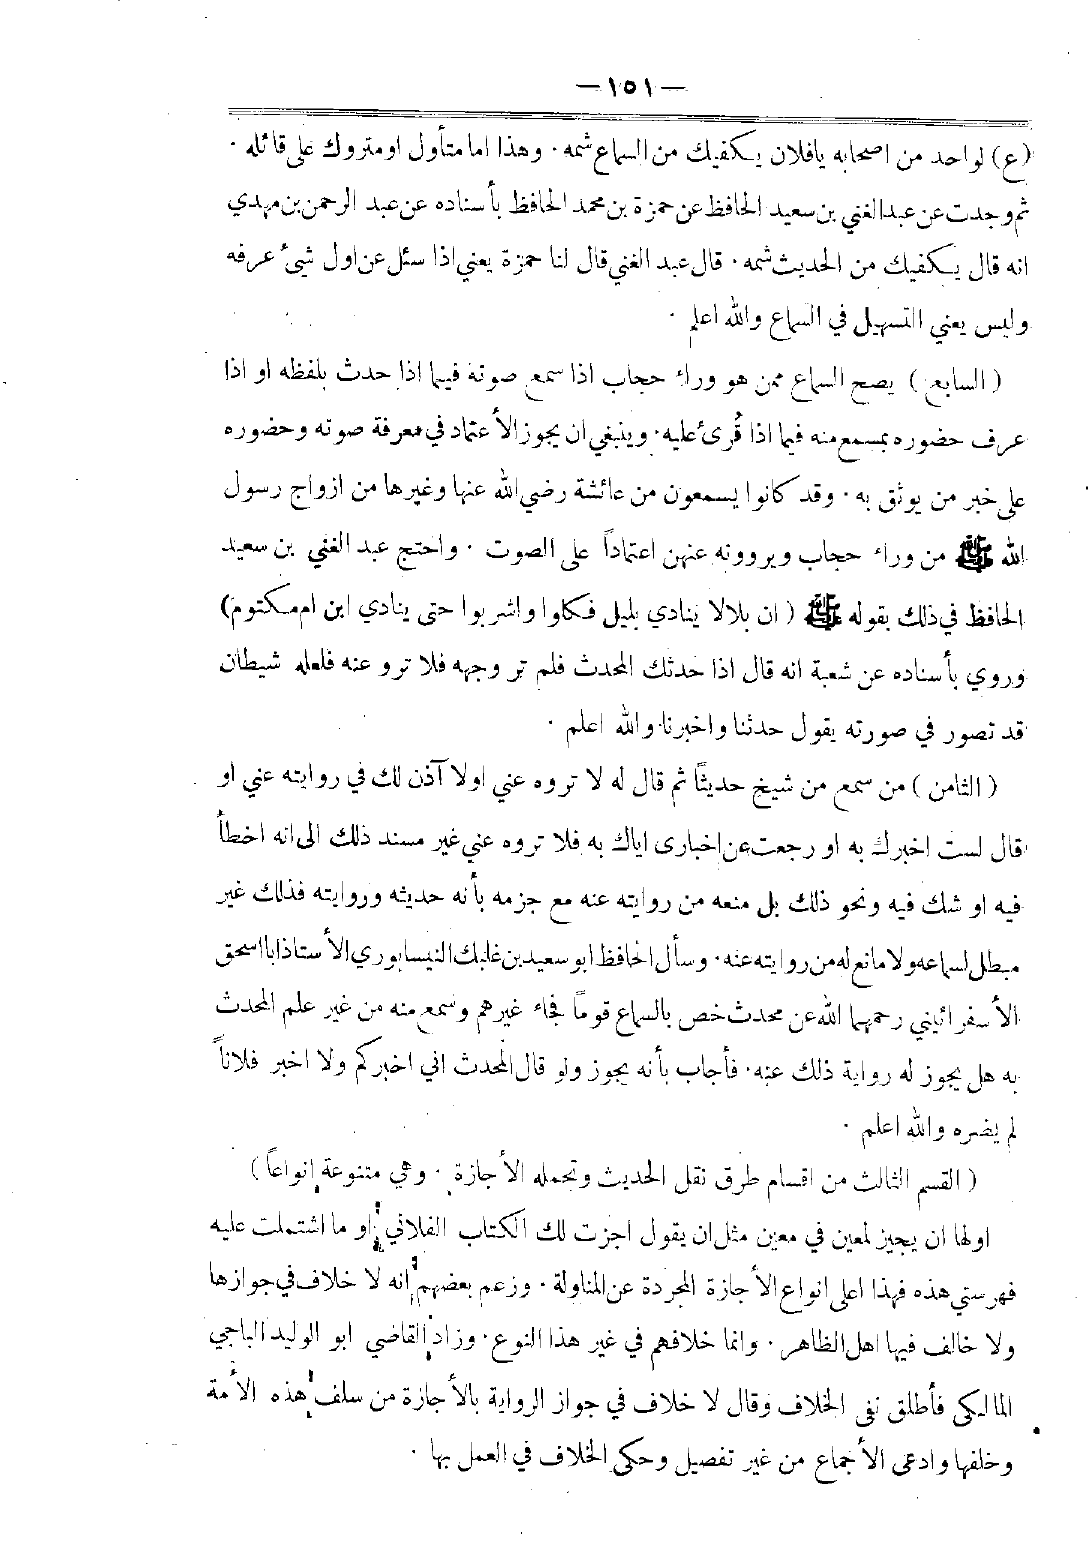 — ١٥١ —
(ع) لواحد من اصحابه يافلان يكفيك من السماع شمه · وهذا اما متأول او متروك على قائله ·
ثم وجدت عن عبد الغني بن سعيد الحافظ عن حمزة بن محمد الحافظ بأسناده عن عبد الرحمن بن مهدي
انه قال يكفيك من الحديث شمه · قال عبد الغني قال لنا حمزة يعني اذا سئل عن اول شيئ عرفه
وليس يعني التسهيل في السماع والله اعلم ·
( السابع ) يصح السماع ممن هو وراء حجاب اذا سمع صوته فيما اذا حدث بلفظه او اذا
عرف حضوره بمسمع منه فيما اذا قُرئ عليه · وينبغي ان يجوز الأعتماد في معرفة صوته وحضوره
على خبر من يوثق به · وقد كانوا يسمعون من عائشة رضي الله عنها وغيرها من ازواج رسول
الله ﷺ من وراء حجاب ويروونه عنهن اعتماداً على الصوت · واحتج عبد الغني بن سعيد
الحافظ في ذلك بقوله ﷺ ( ان بلالا ينادي بليل فكلوا واشربوا حتى ينادي ابن ام مكتوم)
وروي بأسناده عن شعبة انه قال اذا حدثك المحدث فلم تر وجهه فلا ترو عنه فلعله شيطان
قد تصور في صورته يقول حدثنا واخبرنا والله اعلم ·
( الثامن ) من سمع من شيخ حديثاً ثم قال له لا تروه عني اولا آذن لك في روايته عني او
قال لست اخبرك به او رجعت عن اخبارى اياك به فلا تروه عني غير مسند ذلك الى انه اخطأ
فيه او شك فيه ونحو ذلك بل منعه من روايته عنه مع جزمه بأنه حديثه وروايته فذلك غير
مبطل لسماعه ولا مانع له من روايته عنه · وسأل الحافظ ابو سعيد بن غلبك النيسابوري الأستاذ ابا اسحق
الأسفرائيني رحمهما الله عن محدث خص بالسماع قوماً فجاء غيرهم وسمع منه من غير علم المحدث
به هل يجوز له رواية ذلك عنه · فأجاب بأنه يجوز ولو قال المحدث اني اخبركم ولا اخبر فلاناً
لم يضره والله اعلم ·
( القسم الثالث من اقسام طرق نقل الحديث وتحمله الأجازة · وهي متنوعة انواعاً )
اولها ان يجيز لمعين في معين مثل ان يقول اجزت لك الكتاب الفلاني او ما اشتملت عليه
فهرستي هذه فهذا اعلى انواع الأجازة المجردة عن المناولة · وزعم بعضهم انه لا خلاف في جوازها
ولا خالف فيها اهل الظاهر · وانما خلافهم في غير هذا النوع · وزاد القاضي ابو الوليد الباجي
المالكي فأطلق نفى الخلاف وقال لا خلاف في جواز الرواية بالأجازة من سلف هذه الأمة
وخلفها وادعى الأجماع من غير تفصيل وحكى الخلاف في العمل بها ·